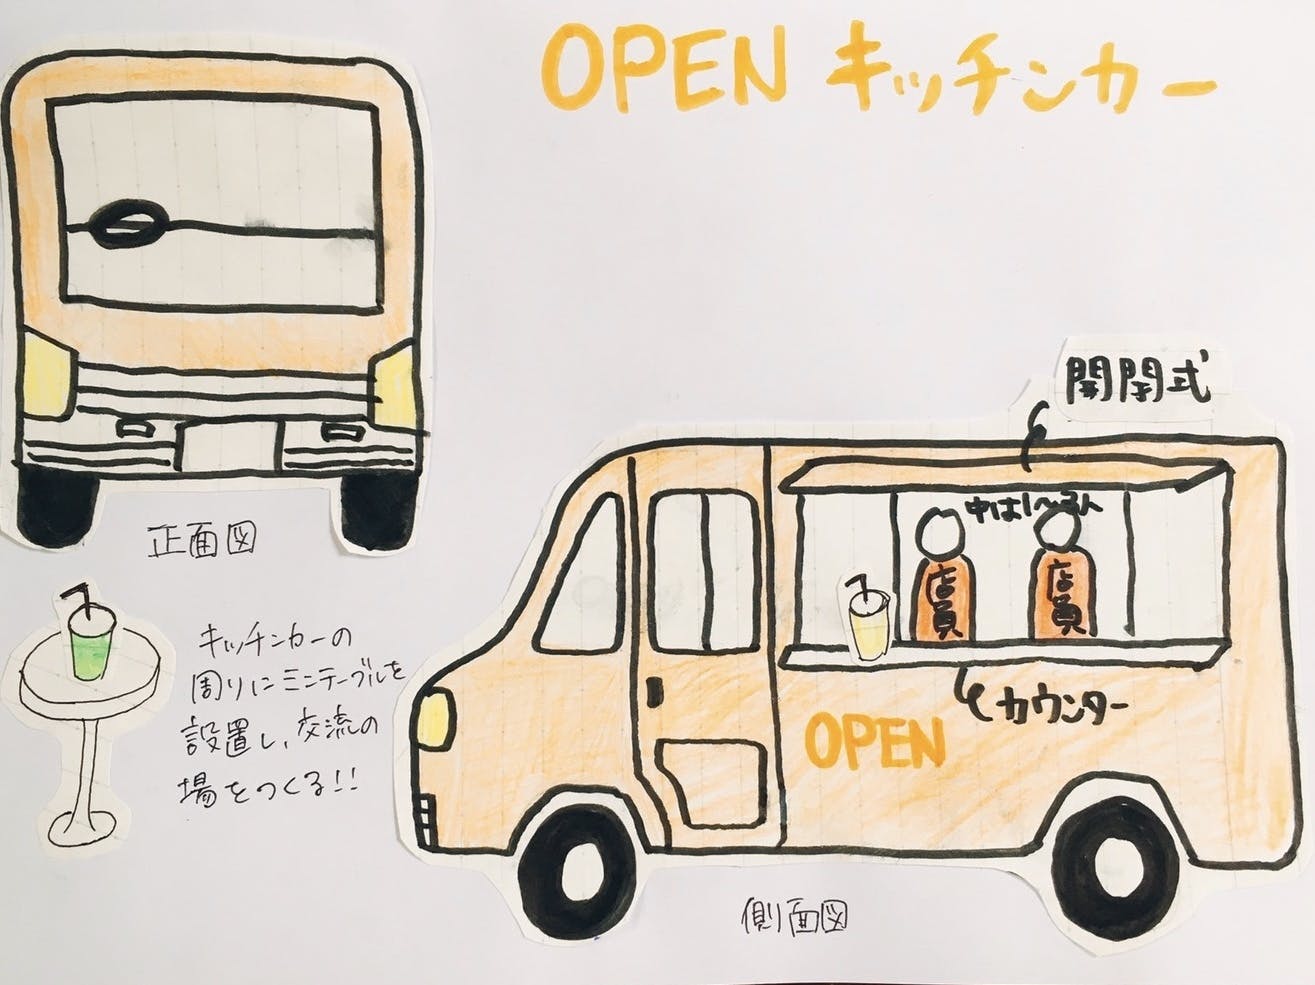 OPEN キッチンカー
開閉式
店員
店員
カウンター
OPEN
正面図
キッチンカーの
周りにミニテーブルを
設置し、交流の
場をつくる!!
側面図